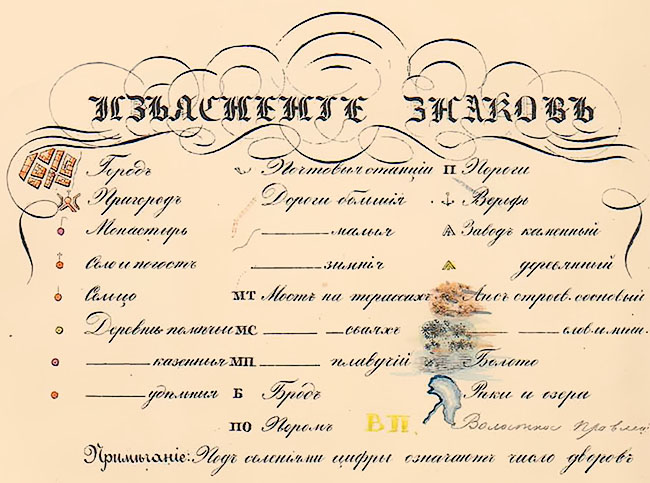 ИЗЪЯСНЕНІЕ ЗНАКОВЪ
Городъ
Пригородъ
Монастырь
Село и погостъ
Сельцо
Деревни
казенныя
удѣльныя
Почтовыя станціи
Дороги большія
малыя
зимнія
МТ Мостъ на трассахъ
МС сваяхъ
МП плавучій
Б Бродъ
ПО Поромъ
П Пороги
Верфь
Заводъ каменный
деревянный
Лѣсъ строев. сосновый
елов. и
Болото
Рѣки и озеры
ВП. Волостное
Примѣчаніе: Подъ селеніями цифры означаютъ число дворовъ